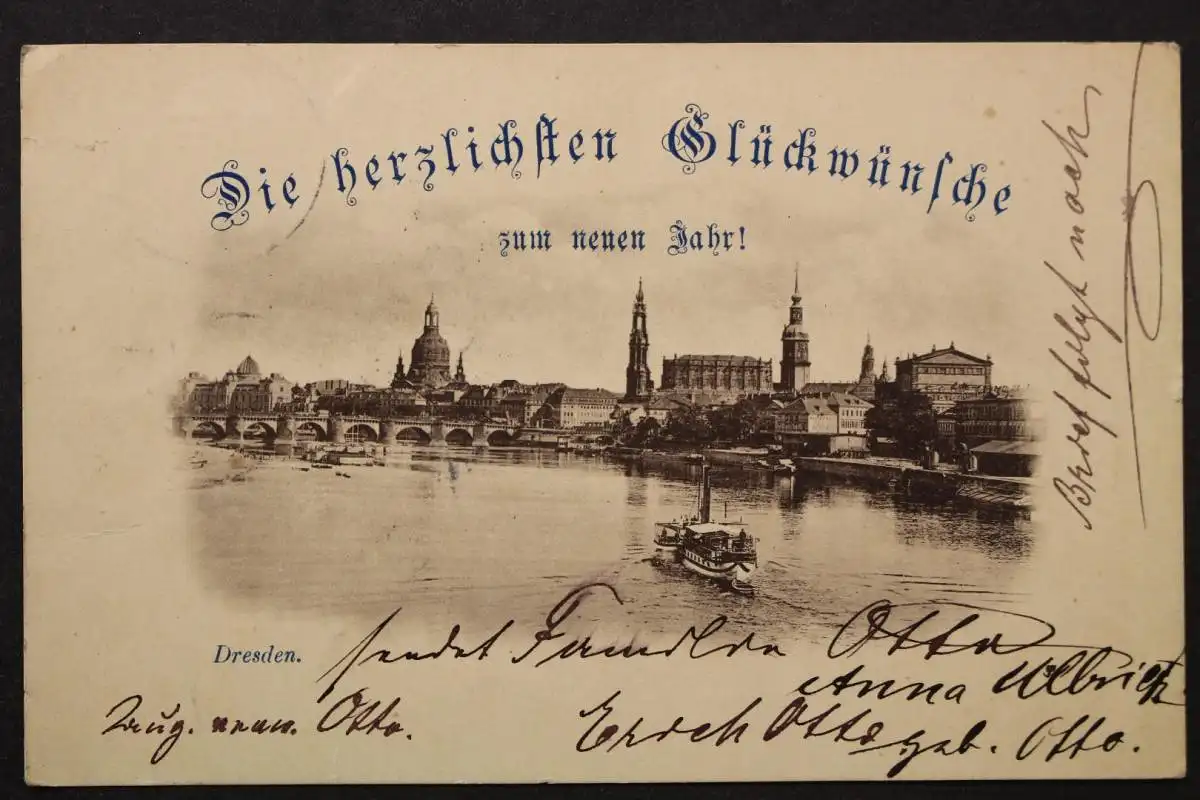 Die herzlichsten Glückwünsche
zum neuen Jahr!
Dresden.
sendet Familie Otto
Anna Ulbrich
geb. Otto.
Erich Otto
Otto.
Brief folgt nach